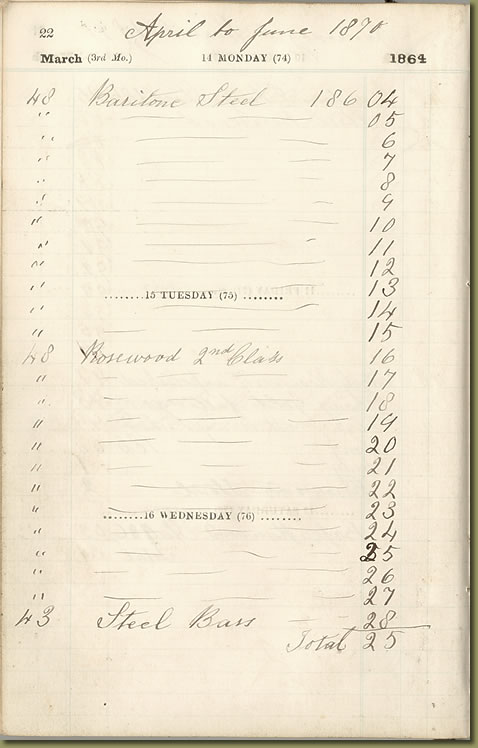 22
April to June 1870
March (3rd Mo.) 14 MONDAY (74) 1864
48 Baritone Steel 186 04
" 05
" 6
" 7
" 8
" 9
" 10
" 11
" 12
" 13
........15 TUESDAY (75) ........
" 14
" 15
48 Rosewood 2nd Class 16
" 17
" 18
" 19
" 20
" 21
" 22
" 23
........16 WEDNESDAY (76) ........
" 24
" 25
" 26
" 27
43 Steel Bars 28
Total 25